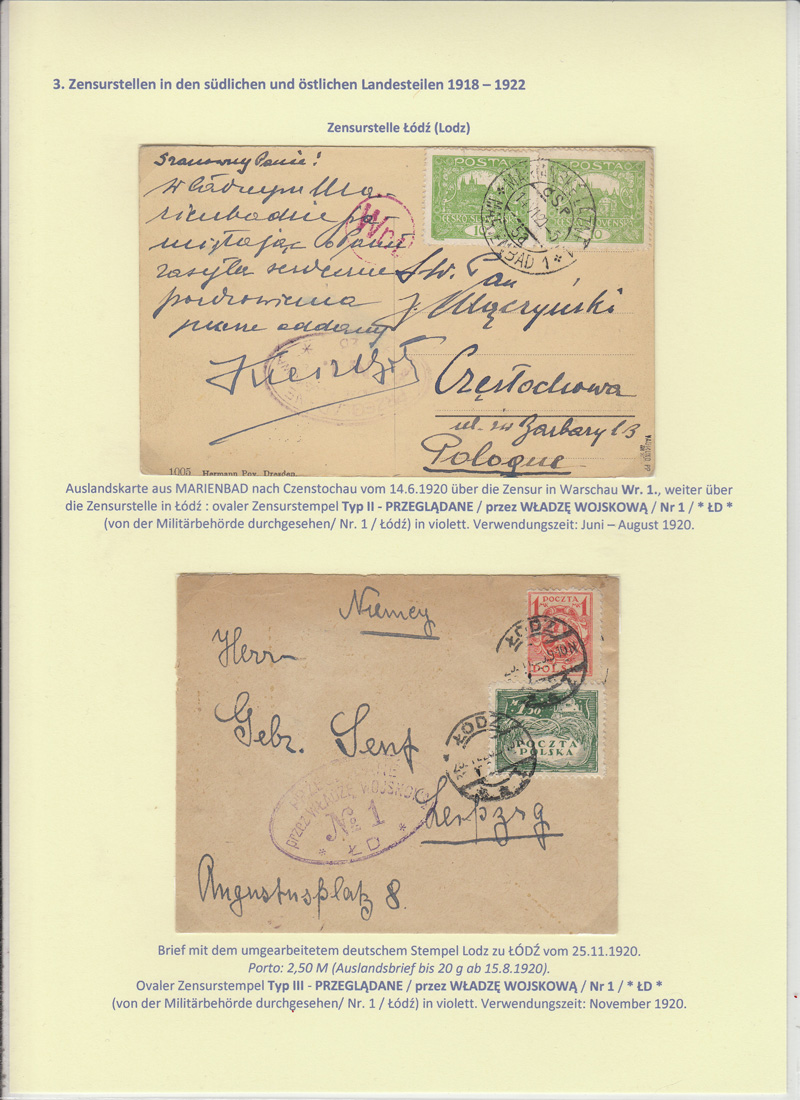 3. Zensurstellen in den südlichen und östlichen Landesteilen 1918 – 1922
Zensurstelle Łódź (Lodz)
Szanowny Panie!
w ładnym Ma-
rienbadzie pa-
miętając o Panu
zasyła serdeczne
pozdrowienia
oddany
Wr. 1.
POSTA
POSTA
MARIENBAD 1
Č.S.P.
Pan
J. Mączyński
Częstochowa
ul. św Barbary 13
Pologne
1005 Hermann Poy, Dresden.
Auslandskarte aus MARIENBAD nach Czenstochau vom 14.6.1920 über die Zensur in Warschau Wr. 1., weiter über
die Zensurstelle in Łódź : ovaler Zensurstempel Typ II - PRZEGLĄDANE / przez WŁADZĘ WOJSKOWĄ / Nr 1 / * ŁD *
(von der Militärbehörde durchgesehen/ Nr. 1 / Łódź) in violett. Verwendungszeit: Juni – August 1920.
Niemcy
1 POCZTA 1
POLSKA
ŁÓDŹ
Herrn
Gebr. Senf
M 1,50
POCZTA
POLSKA
ŁÓDŹ
PRZEGLĄDANE
przez WŁADZĘ WOJSKOWĄ
№ 1
* ŁD *
Leipzig
Augustusplatz 8.
Brief mit dem umgearbeitetem deutschem Stempel Lodz zu ŁÓDŹ vom 25.11.1920.
Porto: 2,50 M (Auslandsbrief bis 20 g ab 15.8.1920).
Ovaler Zensurstempel Typ III - PRZEGLĄDANE / przez WŁADZĘ WOJSKOWĄ / Nr 1 / * ŁD *
(von der Militärbehörde durchgesehen/ Nr. 1 / Łódź) in violett. Verwendungszeit: November 1920.